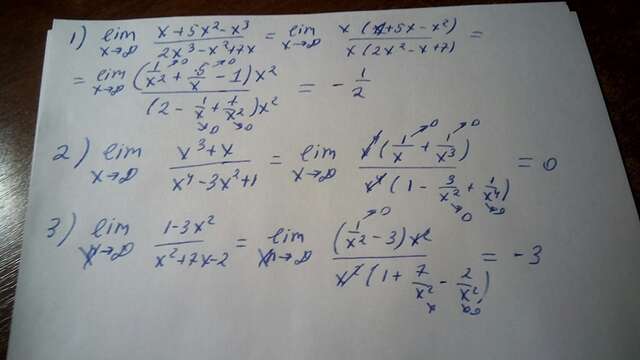 1) lim x→∞ (x+5x²-x³)/(2x³-x²+7x) = lim x→∞ x(1+5x-x²)/x(2x²-x+7) =
= lim x→∞ (1/x² →0 + 5/x →0 - 1)x²/(2 - 1/x →0 + 7/x² →0)x² = -1/2
2) lim x→∞ (x³+x)/(x⁴-3x²+1) = lim x→∞ x⁴(1/x →0 + 1/x³ →0)/x⁴(1 - 3/x² →0 + 1/x⁴ →0) = 0
3) lim x→∞ (1-3x²)/(x²+7x-2) = lim x→∞ (1/x² →0 - 3)x²/x²(1 + 7/x - 2/x² →0) = -3